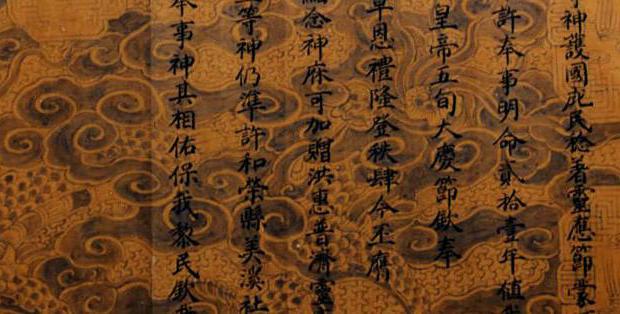 神護國庇民稔著靈應節蒙
許奉事明命貳拾壹年值
皇帝五旬大慶節欽奉
覃恩禮隆登秩肆今丕膺
緬念神庥可加贈洪惠普濟靈
等神仍準許和榮縣美溪社
奉事神其相佑保我黎民欽